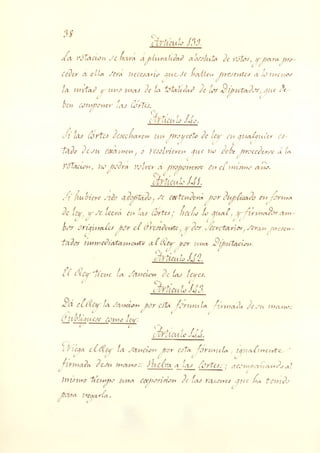 38
Artículo 139.
La votacion se hará á pluralidad absoluta de votos, y para pro-
ceder á ella será necesario que se hallen presentes á lo menos
la mitad y uno mas de la totalidad de los Diputados, que de-
ben componer las Córtes.
Artículo 140.
Si las Córtes desecharen un proyecto de ley en qualquier es-
tado de su exâmen, ó resolvieren que no debe procederse á la
votacion, no podrá volver á proponerse en el mismo año.
Artículo 141.
Si hubiere sido adoptado, se extenderá por duplicado en forma
de ley, y se leerá en las Córtes; hecho lo qual, y firmados am-
bos originales por el Presidente, y dos Secretarios, serán presen-
tados inmediatamente al Rey por una Diputacion.
Artículo 142.
El Rey tiene la sancion de las leyes.
Artículo 143.
Dá el Rey la sancion por esta fórmula, firmada de su mano:
Publíquese como ley.
Artículo 144.
Niega el Rey la sancion por esta fórmula, igualmente
firmada de su mano: Vuelva á las Córtes; acompañando al
mismo tiempo una exposicion de las razones que ha tenido
para negarla.